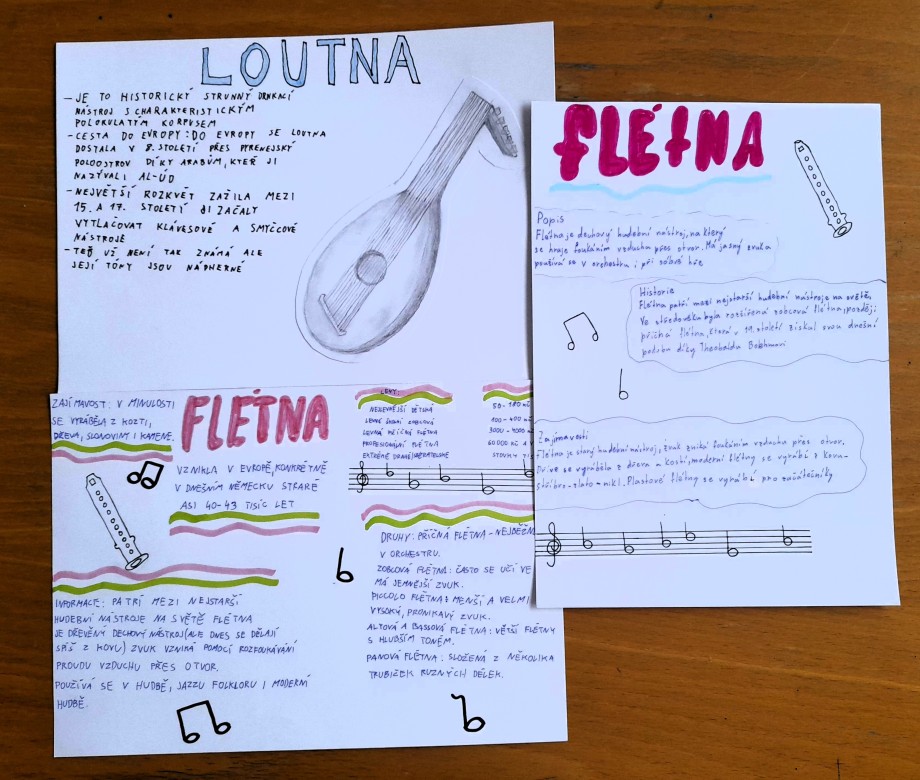 LOUTNA
- JE TO HISTORICKÝ STRUNNÝ DRNKACÍ
NÁSTROJ S CHARAKTERISTICKÝM
POLOKULATÝM KORPUSEM
- CESTA DO EVROPY: DO EVROPY SE LOUTNA
DOSTALA V 8. STOLETÍ PŘES PYRENEJSKÝ
POLOOSTROV DÍKY ARABŮM, KTEŘÍ JI
NAZÝVALI AL-ÚD
- NEJVĚTŠÍ ROZKVĚT ZAŽILA MEZI
15. A 17. STOLETÍ JI ZAČALY
VYTLAČOVAT KLÁVESOVÉ A SMYČCOVÉ
NÁSTROJE
- TEĎ UŽ NENÍ TAK ZNÁMÁ ALE
JEJÍ TÓNY JSOU NÁDHERNÉ
FLÉTNA
Popis
Flétna je dechový hudební nástroj, na který
se hraje foukáním vzduchu přes otvor. Má jasný zvuk a
používá se v orchestru i při sólové hře
Historie
Flétna patří mezi nejstarší hudební nástroje na světě.
Ve středověku byla rozšířená zobcová flétna, později
příčná flétna, která v 19. století získal svou dnešní
podobu díky Theobaldu Boehmovi
Zajímavosti
Flétna je starý hudební nástroj, zvuk zniká foukáním vzduchu přes otvor.
Dříve se vyráběla z dřeva a kosti, moderní flétny se vyrábí z kovu-
stříbro-zlato-nikl. Plastové flétny se vyrábí pro začátečníky
ZAJÍMAVOST: V MINULOSTI
SE VYRÁBĚLA Z KOZTI,
DŘEVA, SLONOVINI I KAMENE.
FLÉTNA
VZNIKLA V EVROPĚ, KONKRÉTNĚ
V DNEŠNÍM NĚMECKU STRARÉ
ASI 40-43 TISÍC LET
INFORMACE: PATŘÍ MEZI NEJSTARŠÍ
HUDEBNÍ NÁSTROJE NA SVĚTĚ FLÉTNA
JE DŘEVĚNÝ DECHOVÝ NÁSTROJ (ALE DNES SE DĚLAJÍ
SPÍŠ Z KOVU) ZVUK VZNIKÁ POMOCÍ ROZFOUKÁVÁNÍ
PROUDU VZDUCHU PŘES OTVOR.
POUŽÍVÁ SE V HUDBĚ, JAZZU FOLKLORU I MODERNÍ
HUDBĚ.
CENY:
NEJLEVNĚJŠÍ DĚTSKÁ 50-180 KČ
LEVNÉ ŠKOLNÍ ZOBCOVÁ 100-400
LEVNÁ PŘÍČNÍ FLÉTNA 3000-
PROFESIONÁLNÍ FLÉTNA 60.000 KČ A
EXTRÉMĚ DRAHÉ STOVKY
DRUHY: PŘÍČNÁ FLÉTNA - NEJBĚŽN
V ORCHESTRU.
ZOBLOVÁ FLÉTNA: ČASTO SE UČÍ VE
MÁ JEMNĚJŠÍ ZVUK.
PICCOLO FLÉTNA: MENŠÍ A VELMI
VYSOKÝ, PRONIKAVÝ ZVUK.
ALTOVÁ A BASSOVÁ FLÉTNA: VĚTŠÍ FLÉTNY
S HLUBŠÍM TÓNEM.
PANOVÁ FLÉTNA: SLOŽENÁ Z NĚKOLIKA
TRUBIČEK RUZNÝCH DÉLEK.